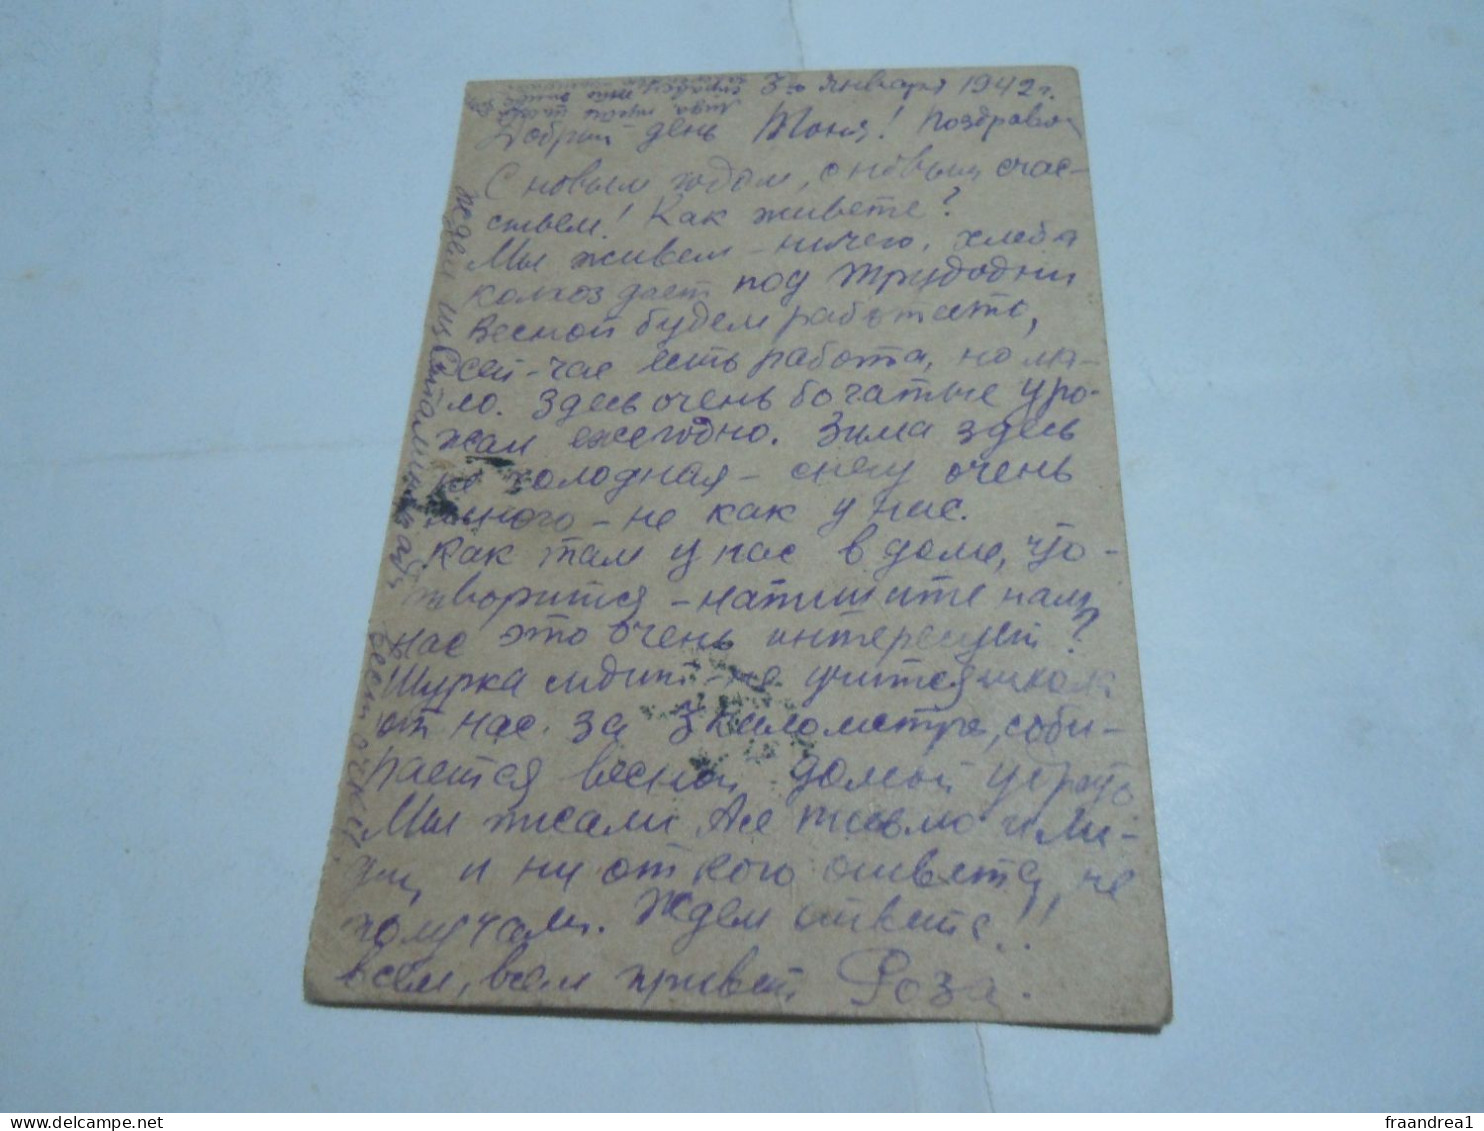 3го января 1942г.
Добрый день Тоня! Поздравля
С новым годом, с новым счас-
тьем! Как живете?
Мы живем - ничего, хлеба
колхоз дает под трудодни
Весной будем работать,
сей-час есть работа, но ма-
ло. Здесь очень богатые уро-
жаи ежегодно. Зима здесь
не холодная - снегу очень
много - не как у нас.
Как там у нас в доме, что
творится - напишите нам,
нас это очень интересует?
Шурка сидит - не учится школа
от нас за 3 километра, соби-
рается весной домой убрать
Мы писали Асе письмо и Ли-
ды, и ни от кого ответа не
получали. Ждем ответа!!
всем, всем привет Роза.
весточки.
fraandrea1